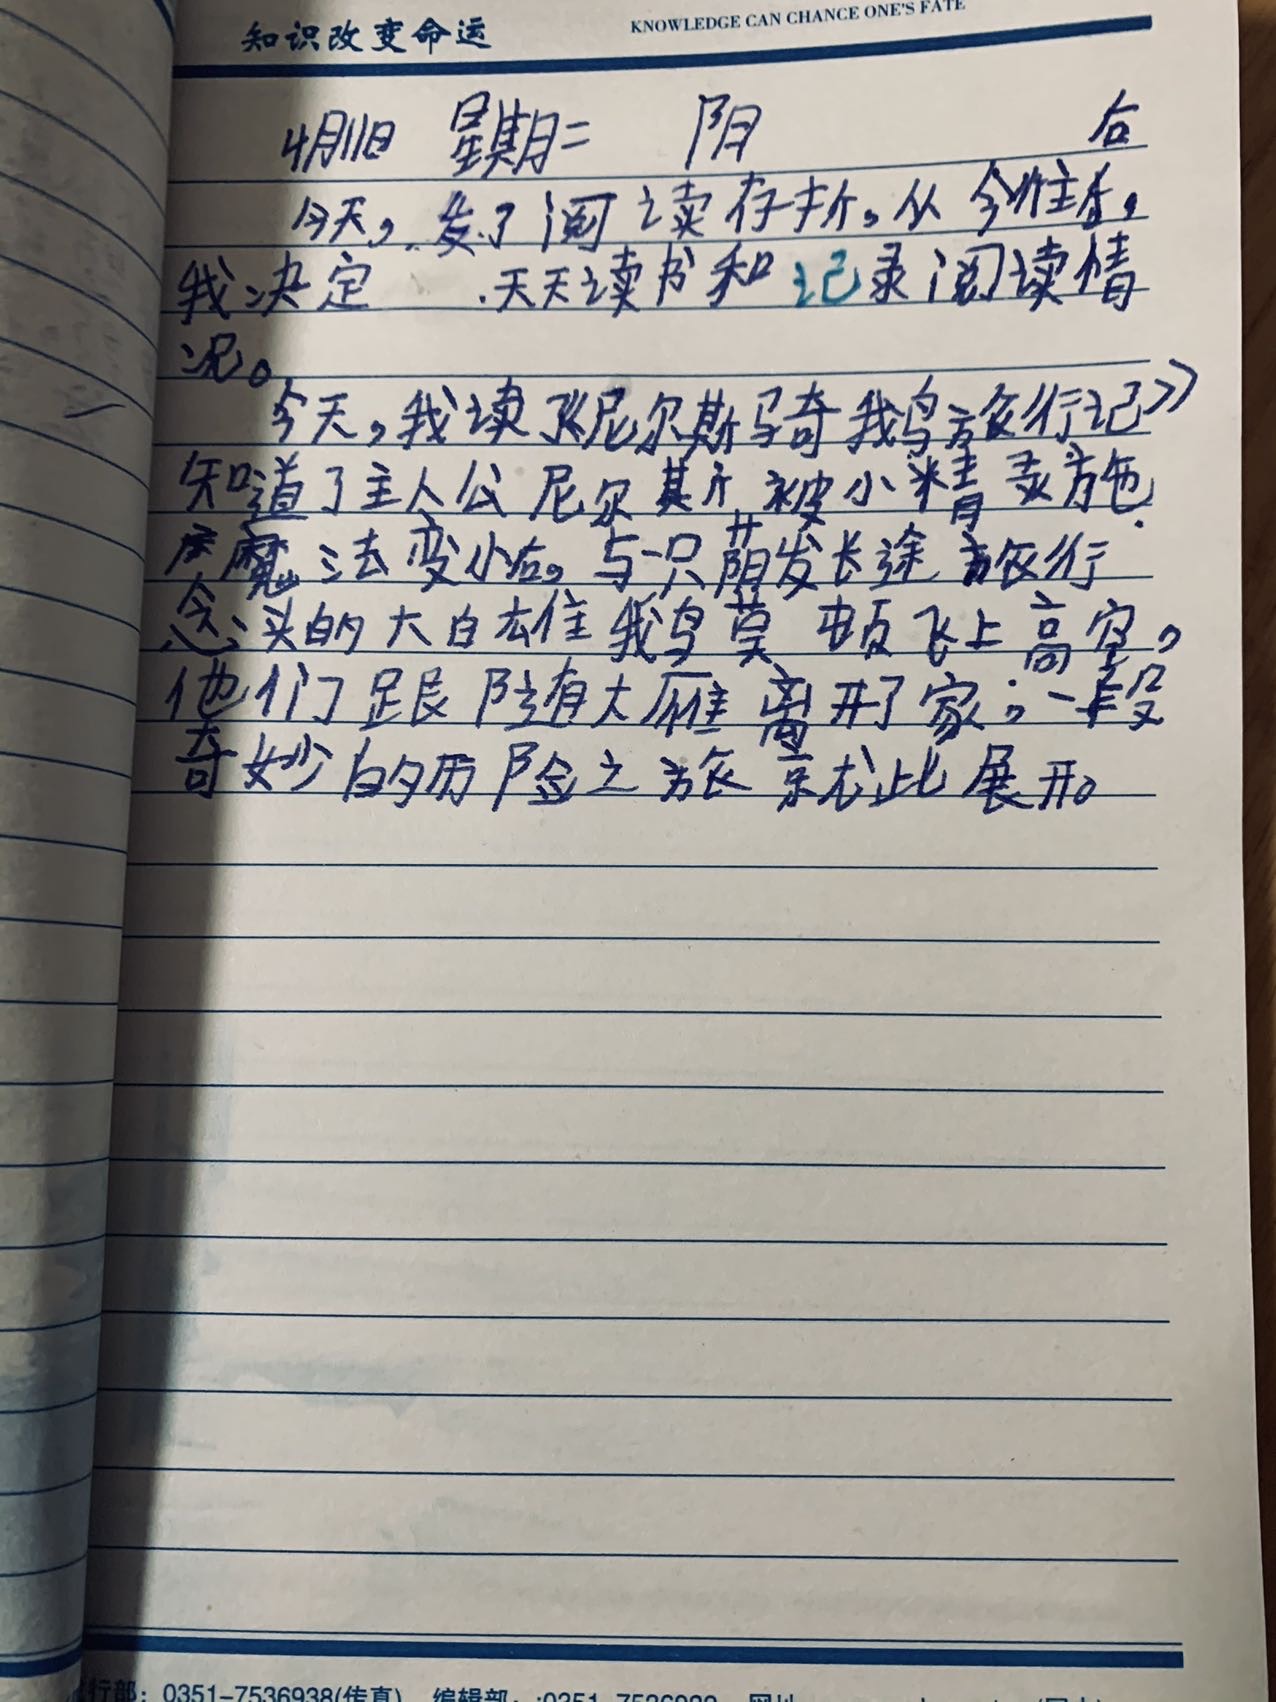 知识改变命运 KNOWLEDGE CAN CHANCE ONE'S FATE
4月11日 星期二 阴
今天,发了阅读存折。从今往后,
我决定 天天读书和记录阅读情
况。
今天,我读了《尼尔斯骑鹅旅行记》
知道了主人公尼尔斯被小精灵施
魔法变小后。与一只萌发长途旅行
念头的大白雄鹅莫顿飞上高空,
他们跟随大雁离开了家,一段
奇妙的历险之旅就此展开。
行部:0351-7536938(传真) 编辑部: